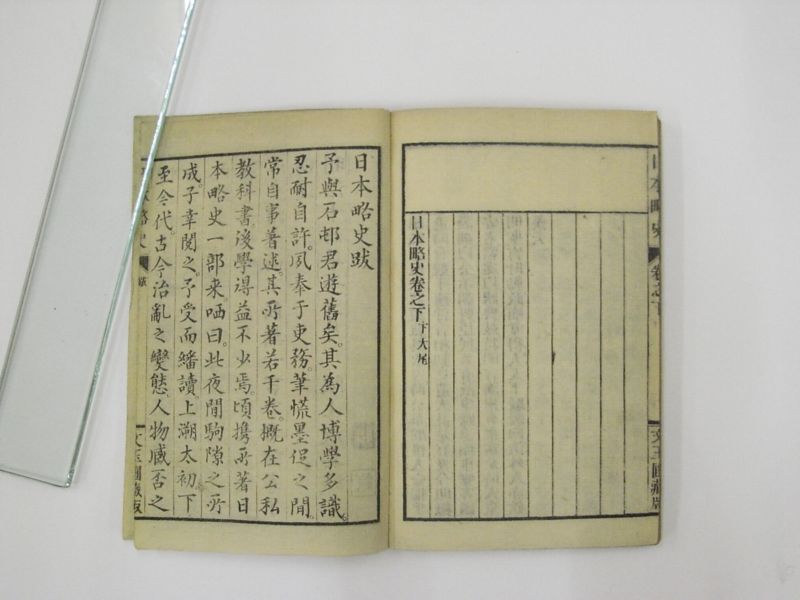 日本略史
卷之下
文玉圃藏版
日本略史卷之下 下大尾
日本略史跋
予與石邨君遊舊矣。其為人博學多識。
忍耐自許。夙奉于吏務。筆慌墨促之間。
常自事著述。其所著若干卷。概在公私
教科書。後學得益不少焉。頃携所著日
本略史一部来哂曰。此夜間駒隙之所
成。子幸閲之。予受而繙讀。上溯太初下
至今代古今治亂之變態人物臧否之
略史
跋
文玉圃藏版